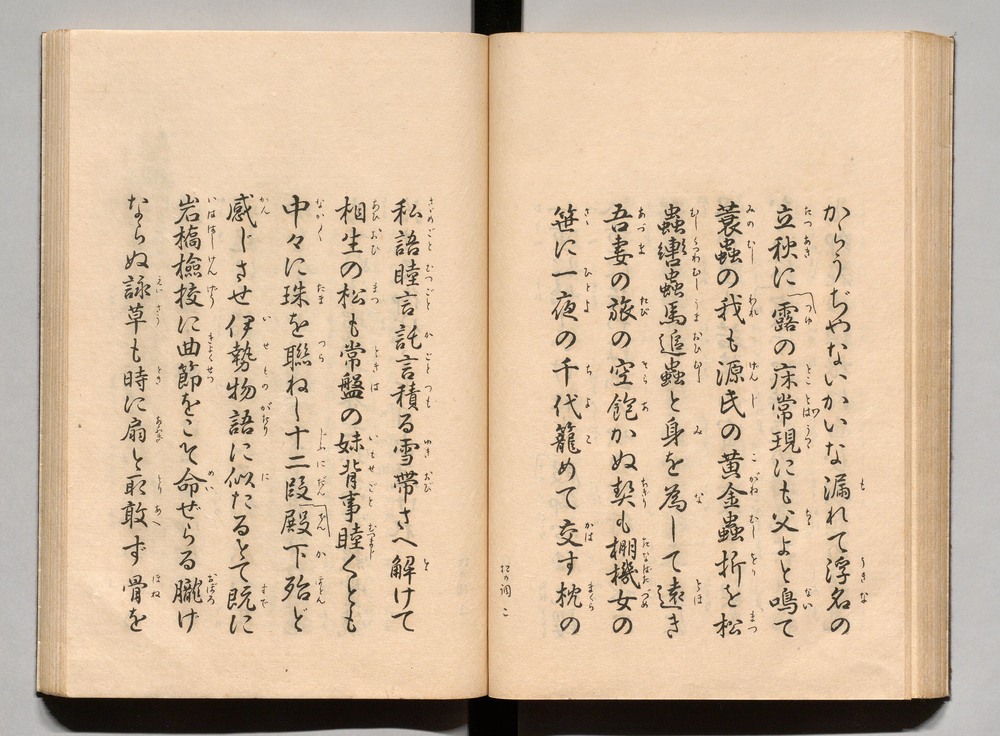 からうぢやないかいな漏れて浮名の
立秋に露の床常現にも父よと鳴て
蓑蟲の我も源氏の黄金蟲折を松
蟲轡蟲馬追蟲と身を為して遠き
吾妻の旅の空飽かぬ契も棚機女の
笹に一夜の千代籠めて交す枕の
私語睦言託言積る雪帶さへ解けて
相生の松も常盤の妹背事睦くとも
中々に珠を聯ねし十二段殿下殆ど
感じさせ伊勢物語に似たるとて既に
岩橋檢挍に曲節をこそ命ぜらる朧げ
ならぬ詠草も時に扇と取敢ず骨を